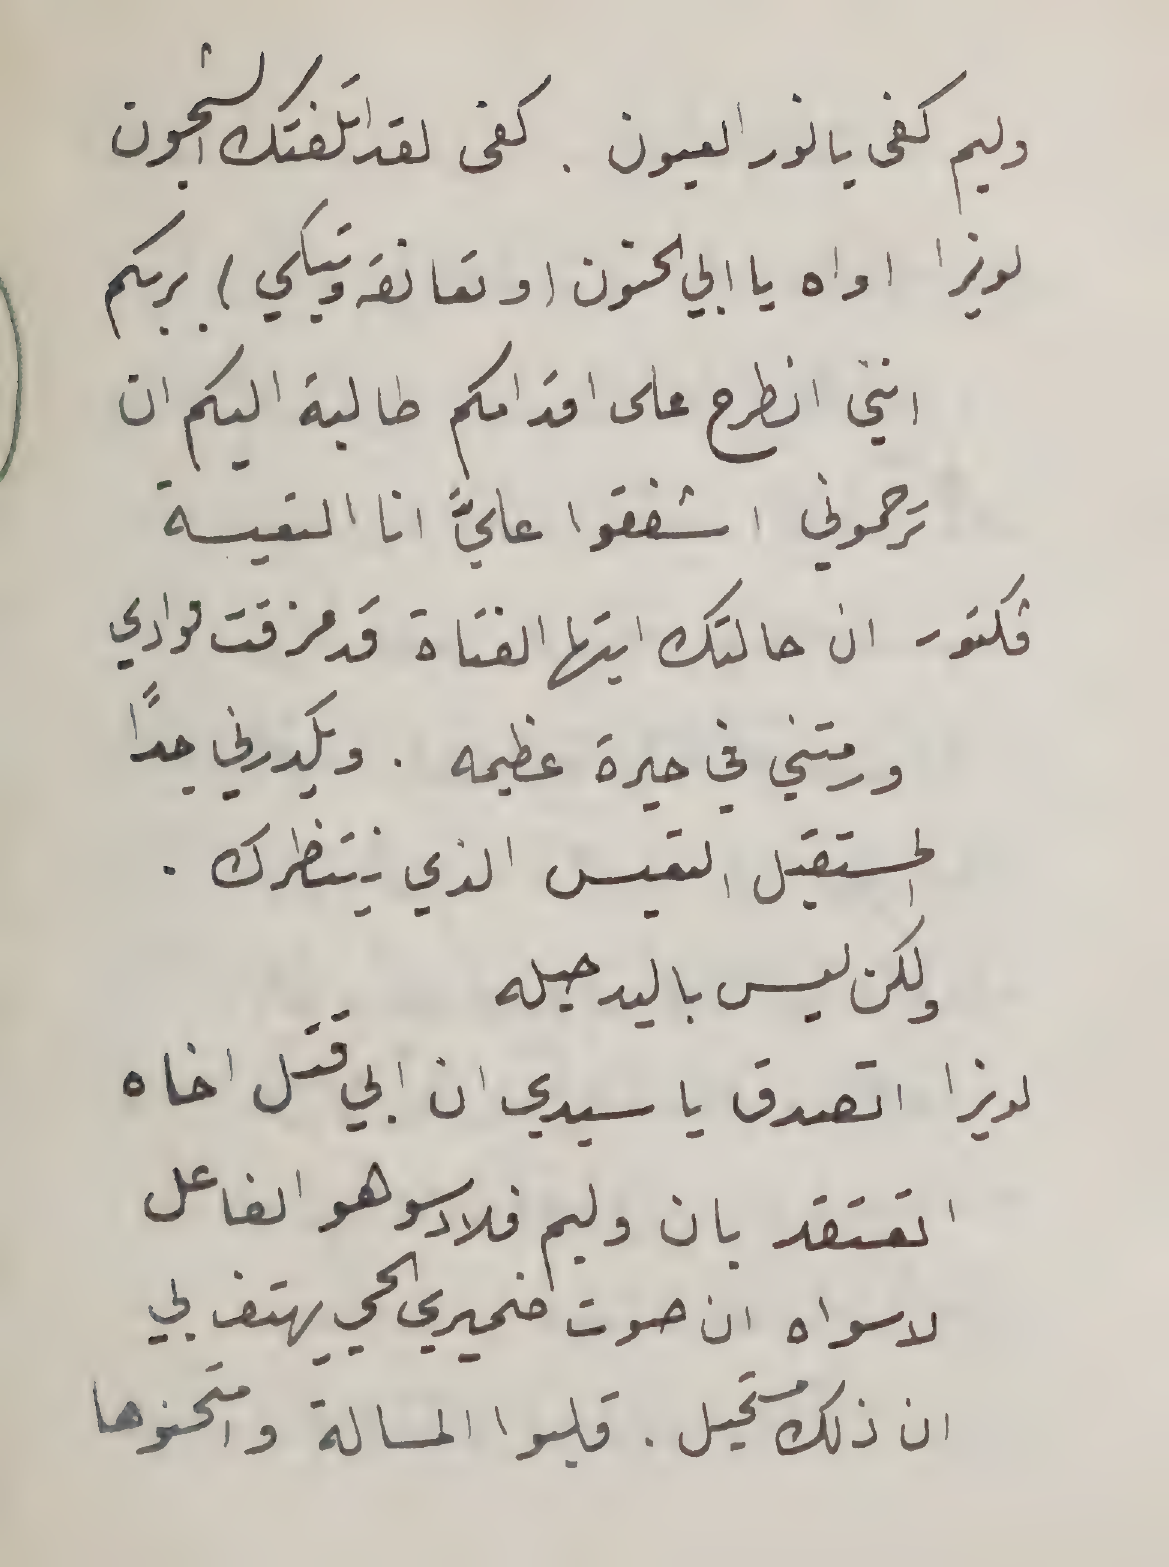 وليم كفى يا نور العيون . كفى لقد اتلفتك الشجون
لويزا اواه يا ابي الحنون (وتعانقه وتبكي) بربكم
انني انطرح على اقدامكم طالبة اليكم ان
ترحموني اشفقوا عليَّ انا التعيسة
فكتور ان حالتك ايتها الفتاة قد مزقت فوادي
ورمتني في حيرة عظيمه . ويكدرني جدًا
المستقبل التعيس الذي ينتظرك .
ولكن ليس باليد حيله
لويزا اتصدق يا سيدي ان ابي قتل اخاه
اتعتقد بان وليم فلادسو هو الفاعل
لا سواه ان صوت ضميري الحي يهتف بي
ان ذلك مستحيل . قلبوا المسالة وامتحنوها